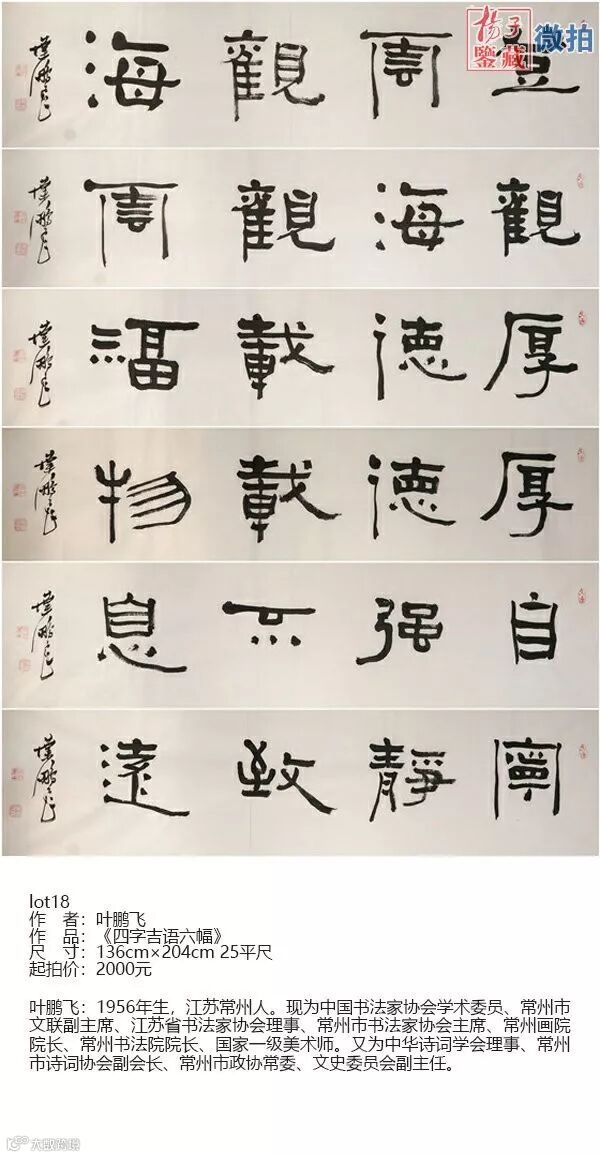 楊子鑒藏 微拍
登雲觀海
觀海觀雲
厚德載福
厚德載物
自强不息
寧靜致遠
lot18
作 者：叶鹏飞
作 品：《四字吉语六幅》
尺 寸：136cm×204cm 25平尺
起拍价：2000元
叶鹏飞：1956年生，江苏常州人。现为中国书法家协会学术委员、常州市
文联副主席、江苏省书法家协会理事、常州市书法家协会主席、常州画院
院长、常州书法院院长、国家一级美术师。又为中华诗词学会理事、常州
市诗词协会副会长、常州市政协常委、文史委员会副主任。
大数跨境